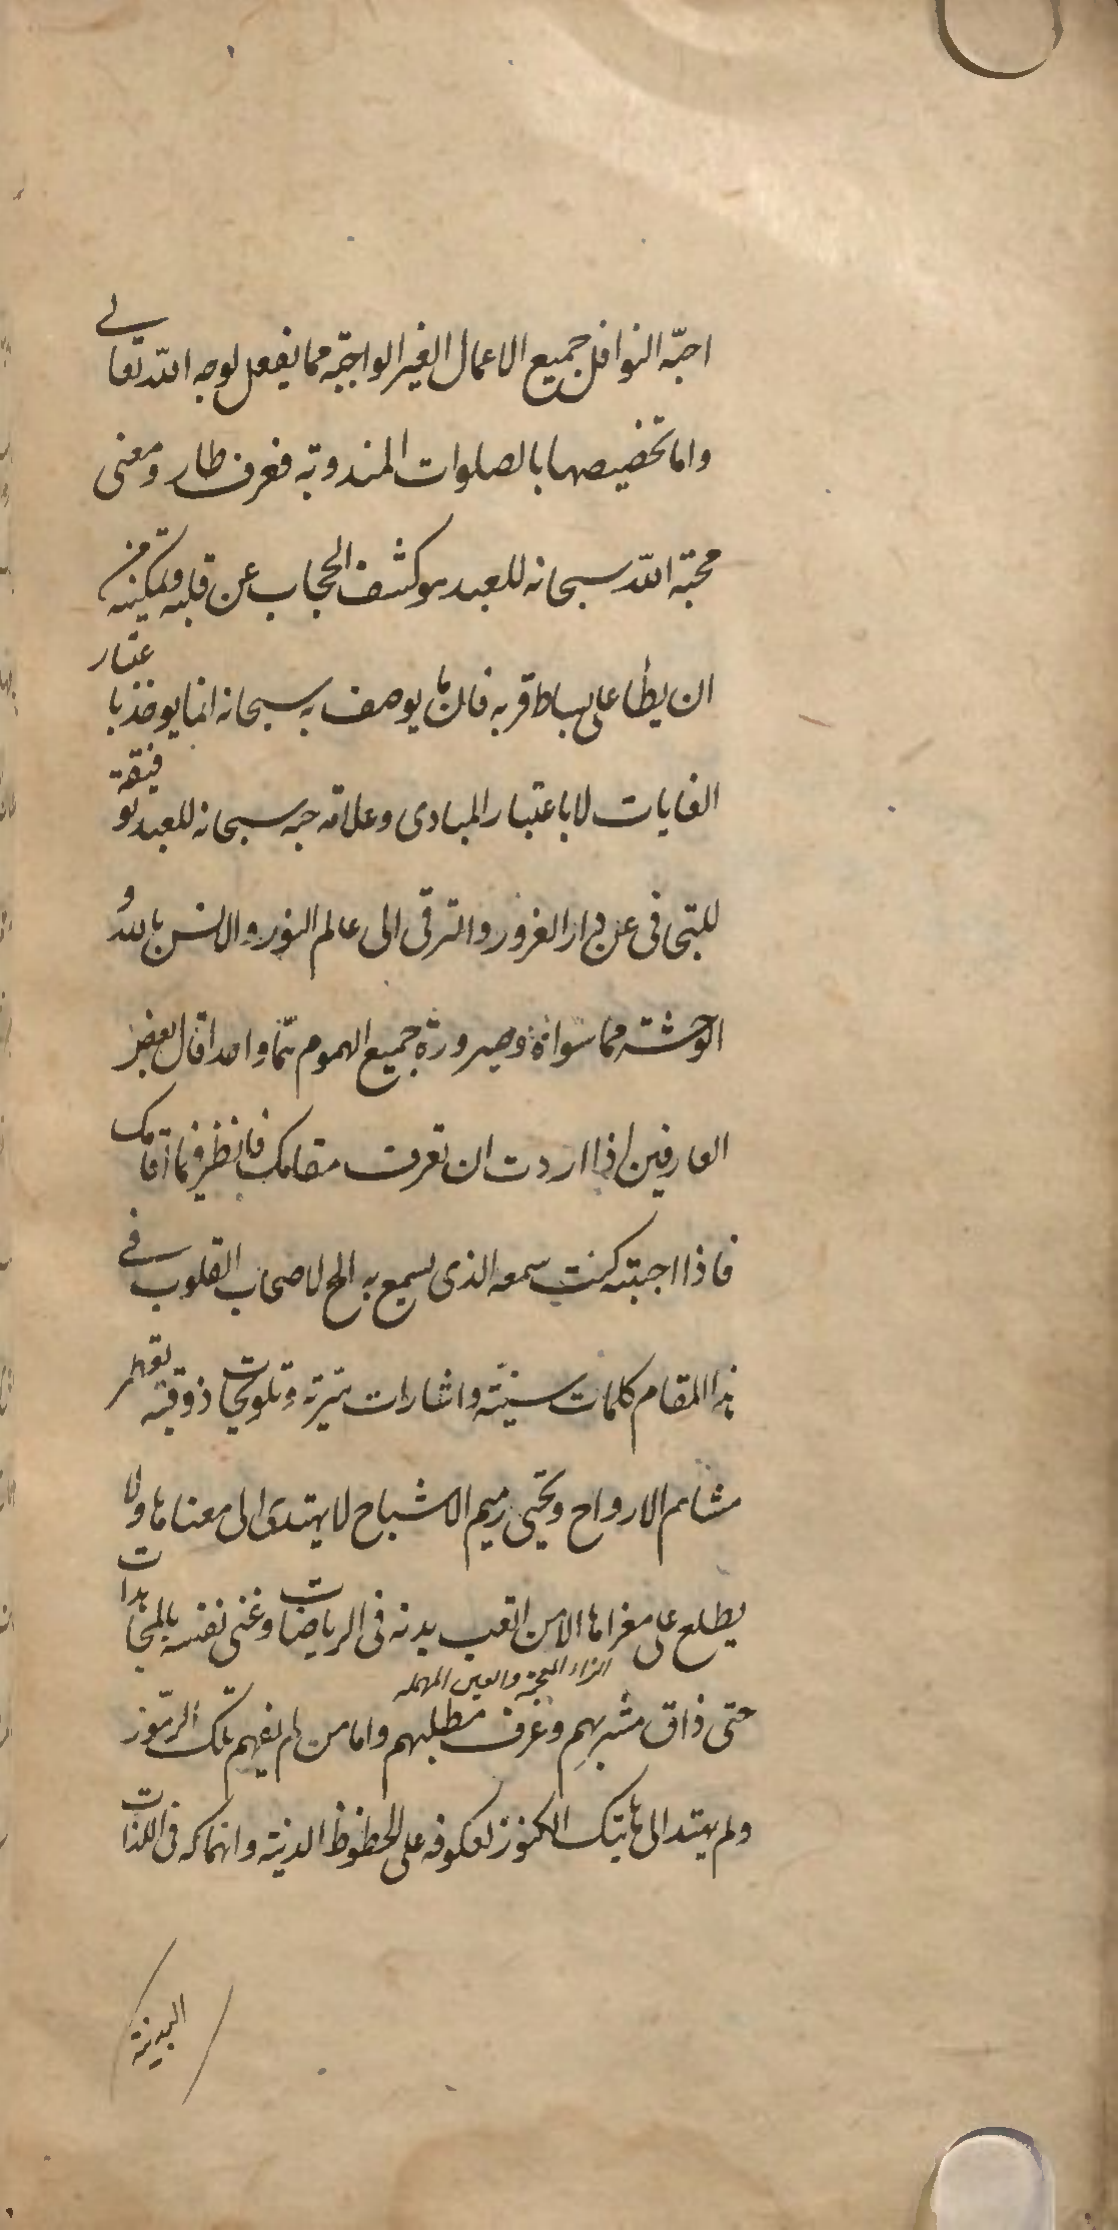 احبّه النوافل جميع الاعمال الغير الواجبة مما يفعل لوجه الله تعالى
واما تخصيصها بالصلوات المندوبة فعرف طار ومعنى
محبة الله سبحانه للعبد هو كشف الحجاب عن قلبه وتمكينه من
ان يطأ على بساط قربه فان ما يوصف به سبحانه انما يوخذ باعتبار
الغايات لا باعتبار المبادى وعلامة حبه سبحانه للعبد توفيقه
للتجافى عن دار الغرور والترقى الى عالم النور والانس بالله و
الوحشة مما سواه وصيرورة جميع الهموم همّا واحدا قال بعض
العارفين اذا اردت ان تعرف مقامك فانظر فيما اقامك
فاذا احببته كنت سمعه الذى يسمع به الخ لاصحاب القلوب فى
هذا المقام كلمات سنيّة واشارات سرّية وتلويحات ذوقية تعطر
مشام الارواح وتحيى رميم الاشباح لا يهتدى الى معناها ولا
يطلع على مغزاها الا من اتعب بدنه فى الرياضات وعنى نفسه بالمجاهدات
الزاء المعجمة والعين المهملة
حتى ذاق مشربهم وعرف مطلبهم واما من لم يفهم تلك الرموز
ولم يهتد الى هاتيك الكنوز لعكوفه على الحظوظ الدنية وانهماكه فى اللذات
البدنية